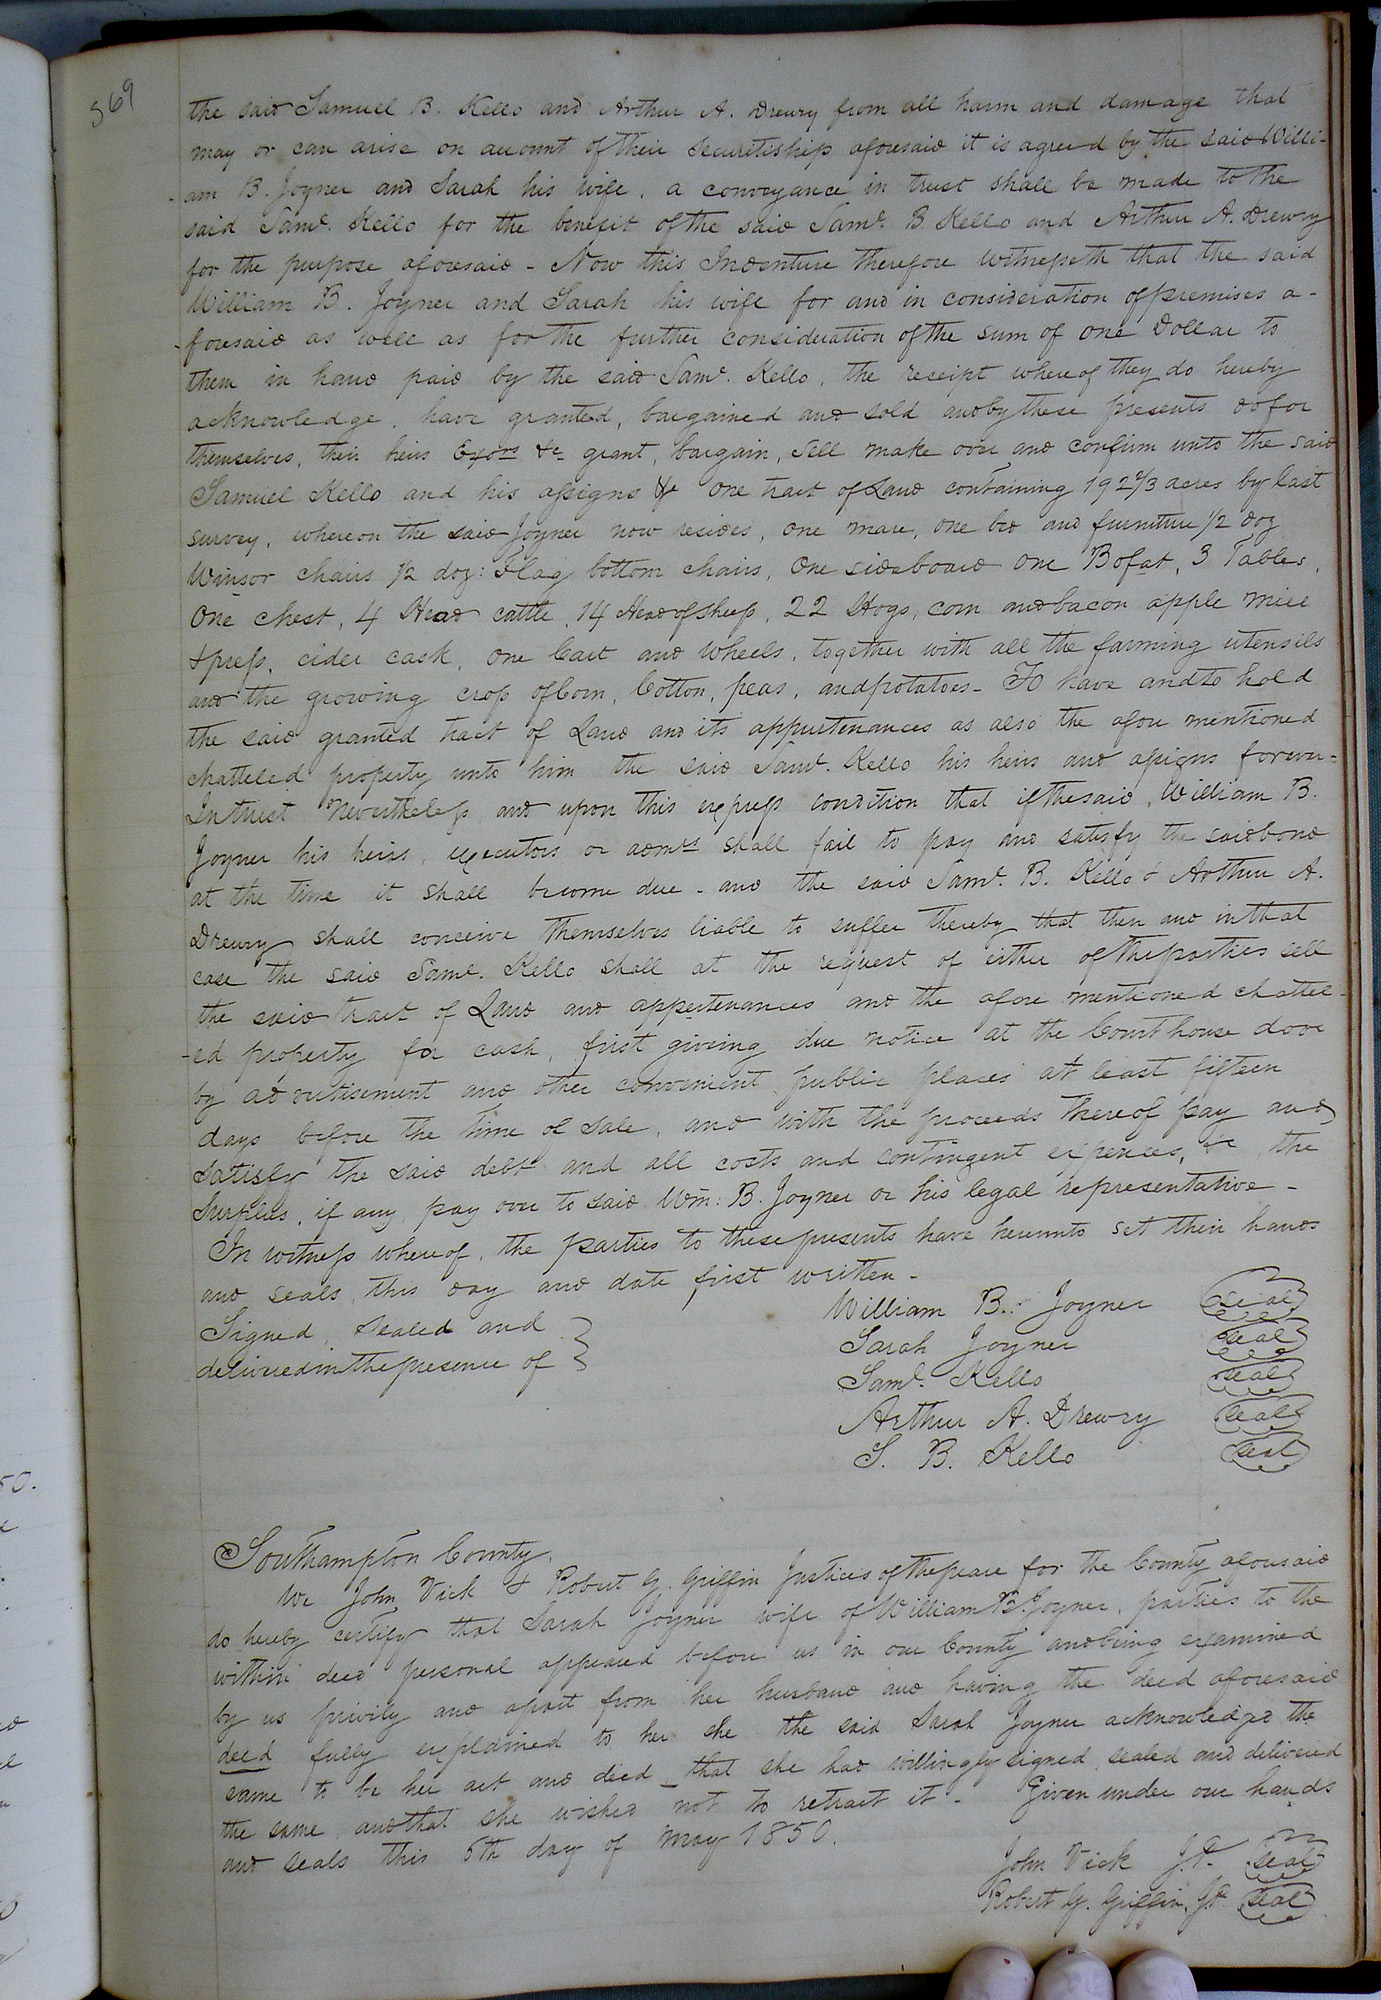 569
the said Samuel B. Kello and Arthur A. Drewry from all harm and damage that
may or can arise on account of their securitiship aforesaid it is agreed by the said Willi-
-am B. Joyner and Sarah his wife, a conveyance in trust shall be made to the
said Saml. Kello for the benefit of the said Saml. B. Kello and Arthur A. Drewry
for the purpose aforesaid - Now this Indenture therefore witnesseth that the said
William B. Joyner and Sarah his wife for and in consideration of premises a-
-foresaid as well as for the further consideration of the sum of one Dollar to
them in hand paid by the said Saml. Kello, the receipt whereof they do hereby
acknowledge, have granted, bargained and sold and by these presents do for
themselves, their heirs Exors &c grant, bargain, sell make over and confirm unto the said
Samuel Kello and his assigns & one tract of Land containing 192 2/3 acres by last
survey, whereon the said Joyner now resides, one mare, one bed and furniture 1/2 doz
Winsor chairs 1/2 doz: Flag bottom chairs, One sideboard one Bofat, 3 Tables,
One chest, 4 Head cattle, 14 Head of Sheep, 22 Hogs, corn and bacon apple mill
& press, cider cask, one Cart and wheels, together with all the farming utensils
and the growing crop of Corn, Cotton, peas, and potatoes - To have and to hold
the said granted tract of Land and its appurtenances as also the afore mentioned
chatteled property unto him the said Saml. Kello his heirs and assigns forever -
In trust Nevertheless and upon this express condition that if the said William B.
Joyner his heirs, executors or admrs shall fail to pay and satisfy the said bond
at the time it shall become due - and the said Saml. B. Kello & Arthur A.
Drewry shall conceive themselves liable to suffer thereby that then and in that
case the said Saml. Kello shall at the request of either of the parties sell
the said tract of Land and appertenances and the afore mentioned chattel-
-ed property for cash, first giving due notice at the Courthouse door
by advertisement and other convenient public places at least fifteen
days before the time of sale, and with the proceeds thereof pay and
satisfy the said debt and all costs and contingent expences, &c, the
Surplus, if any, pay over to said Wm: B. Joyner or his legal representative -
In witness whereof, the parties to these presents have hereunto set their hands
and seals this day and date first written -
William B. Joyner seal
Signed, Sealed and
Sarah Joyner seal
delivered in the presence of
Saml. Kello seal
Arthur A. Drewry seal
S. B. Kello seal
Southampton County,
We John Vick & Robert G. Griffin Justices of the peace for the County aforesaid
do hereby certify that Sarah Joyner wife of William B. Joyner, parties to the
within deed personal appeared before us in our County and being examined
by us privily and apart from her husband and having the deed aforesaid
deed fully explained to her she the said Sarah Joyner acknowledged the
same to be her act and deed - that she had willingly signed, sealed and delivered
the same, and that she wished not to retract it - Given under our hands
and seals this 6th day of May 1850.
John Vick J.P. seal
Robert G. Griffin, J.P. seal